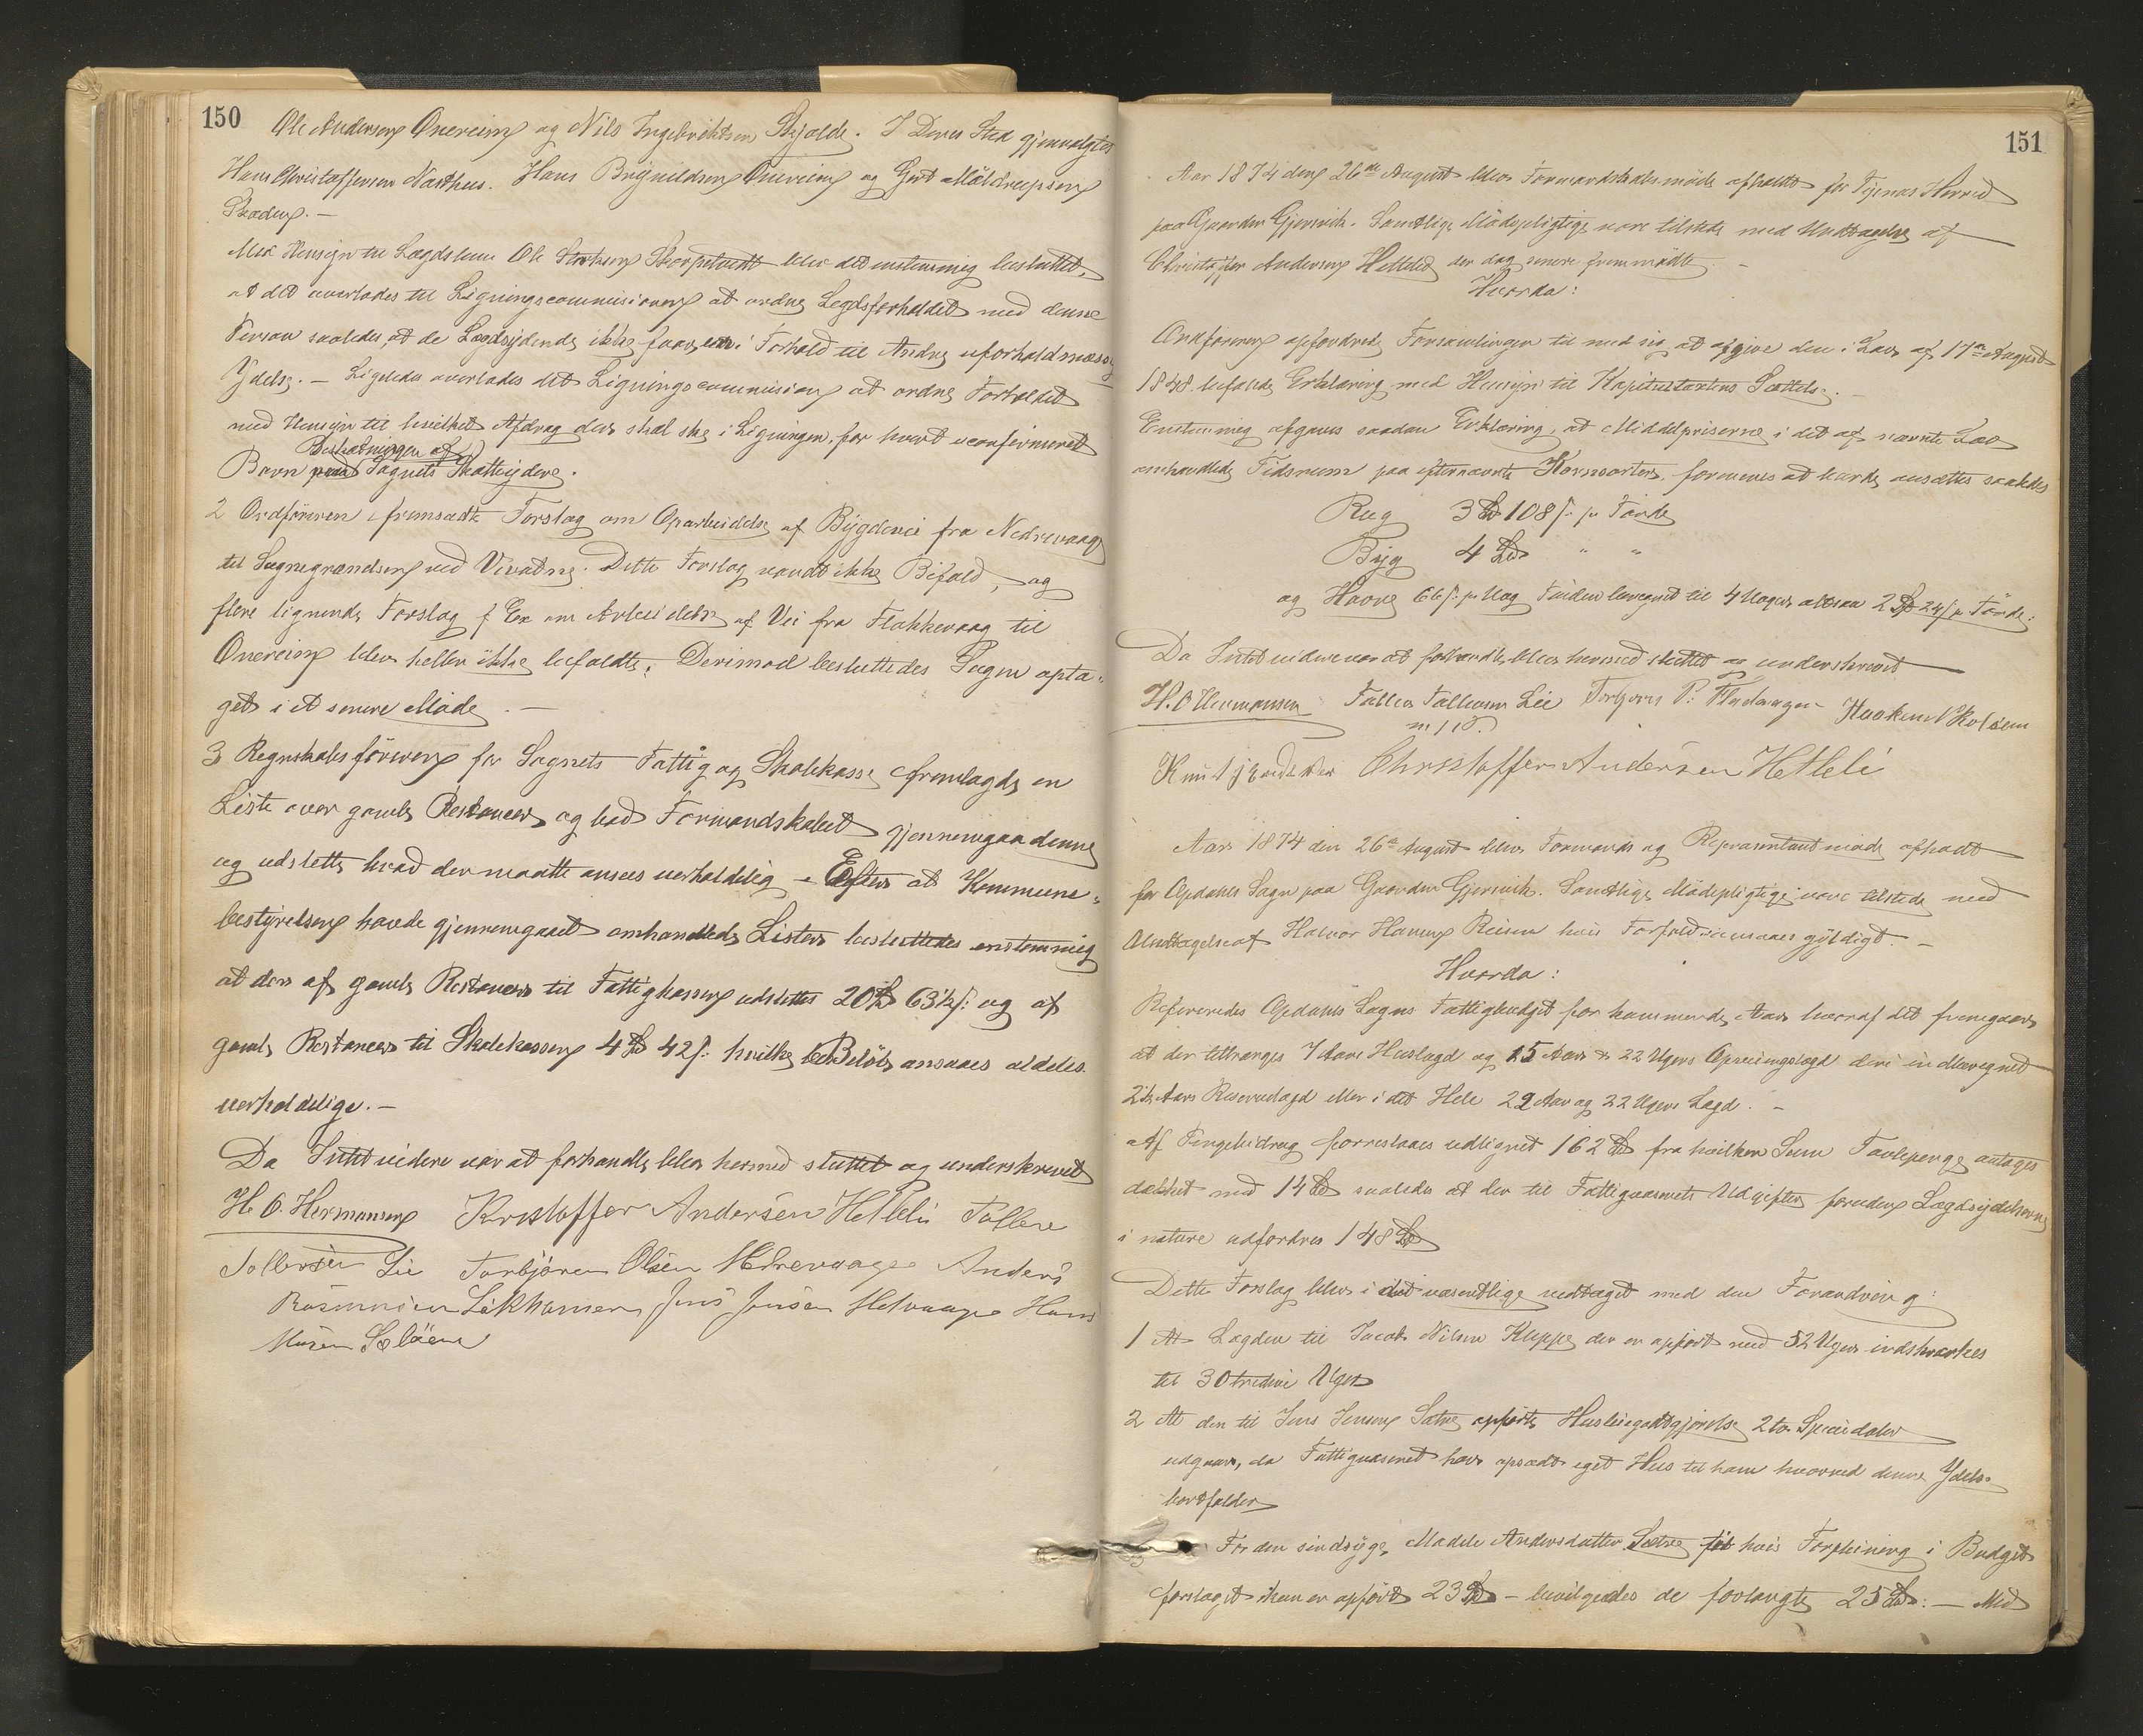 150
Ole Andersen Onereim og Nils Ingebrihtsen Skjolde. I Deres Sted gjenvalgtes
Hans Christoffersen Narthus. Hans Brynildsen Onereim og Gert
Med Hensyn til Lægdslem Ole blev det enstemmig besluttet,
at det overlades til Ligningscommisionen at ordne Legdsforholdet med denne
Person saaledes, at de Lægdsydende ikke faar, i Forhold til Andre uforholdmæssig
Ydelse. — Ligeledes overlades det Ligningscommision at ordne Forholdet
med Hensyn til hvilket Afdrag der skal ske i Ligningen, for hvert uconfirmeret
Beskatningen af
Barn Sognets Skatteydere.
2 Ordføreren fremsadte Forslag om Oparbeidelse af Bygdevei fra Nedrevaage
til Sognegrændsen ved Vivatne. Dette Forslag vandt ikke Bifald, og
flere lignende Forslag f Ex om Arbeidelse af Vei fra Flakkevaag til
Onereim blev heller ikke bifaldte; Derimod besluttedes Sagen opta-
get i et senere Møde. —
3 Regnskabsføreren for Sognets Fattig og Skolekasse fremlagde en
Liste over gamle Restancer og bad Formandskabet gjennemgaa denne
og udslette hvad der maatte ansees uerholdelig — Efter at Kommune-
bestyrelsen havde gjennemgaaet omhandlede Lister besluttedes enstemmig
at der af gamle Restancer til Fattigkassen udslettes 20 Spd 63½ s: og af
gamle Restancer til Skolekassen 4 Spd 42 s: hvilke Beløb ansaaes aldeles
uerholdelige. —
Da Intet videre var at forhandle blev hermed sluttet og underskrevet
H. O. Hermansen Kristoffer Andersen Hetlelie Tollev
Tollevsen Lie Torbjøren Olsen Nedrevaage Anders
Rasmusen Jens Jensen Hans
151
Aar 1874 den 26de August blev Formandskabsmøde afholdt for Tysnæs Herred
paa Gaarden Gjersvik. Samtlige Mødepligtige vare tilstede med Undtagelse af
Christoffer Andersen Hetleliø der dog senere fremmødte —
Hvorda:
Ordføreren opfordrede Forsamlingen til med sig at afgive den i Lov af 17de August
1848 befalede Erklæring med Hensyn til Kapitelstaxtens Sættelse. —
Enstemmig afgaves saadan Erklæring, at Middelpriserne i det af nævnte Lov
omhandlede Tidsrum paa efternævnte Kornsorter, formenes at burde ansættes saaledes
Rug 3 Spd 108 s: pr Tønde
Byg 4 Spd " "
og Havre 66 s: pr Vog Tønden beregnet til 4 Voger altsaa 2 Spd 24 s pr Tønde:
Da Intet videre var at forhandle blev hermed sluttet og underskrevet
H. O Hermansen Tollev Tollevsen Lie Torbjørn Haaken N Kolsem
m. p. P.
Knut Christoffer Andersen Hetleli
Aar 1874 den 26de August blev Formands og Representantmøde afholdt
for Opdahls Sogn paa Gaarden Gjersvik. Samtlige Mødepligtige vare tilstede med
Undtagelse af Halvor Hansen Reisen hvis Forfald ansaaes gyldigt. —
Hvorda:
Refereredes Opdahls Sogns Fattigbudget for kommende Aar hvoraf det fremgaar
at der tiltrænges 7 Aars Huslægd og 15 Aar & 22 Ugers Opseeingslægd deri indberegnet
2½ Aars Reservelægd eller i det Hele 22 Aar og 22 Ugers Lægd. —
Af Pengebidrag foreslaaes udlignet 162 Spd fra hvilken Sum Tavlepenge antages
dækket med 14 Spd saaledes at der til Fattigvæsenets Udgifter foruden Lægdsydelserne
i nature udfordres 148 Spd
Dette Forslag blev i det væsentlige vedtaget med den Forandring:
1 At Lægden til Jacob Nilsen Kleppe der er opført med 52 Uger indskrænkes
til 30 tredive Uger
2 At den til Jens Jensen Sætre opførte Husleiegodtgjørelse 2 to Speciedaler
udgaar, da Fattigvæsenet har opsadt eget Hus til ham hvorved denne Ydelse
bortfalder
For den sindsyge, Madele Andersdatter Sætre hvis Forpleining i Budget
forslaget kun er opført 23 Spd — bevilgedes de forlangte 25 Spd: — Med